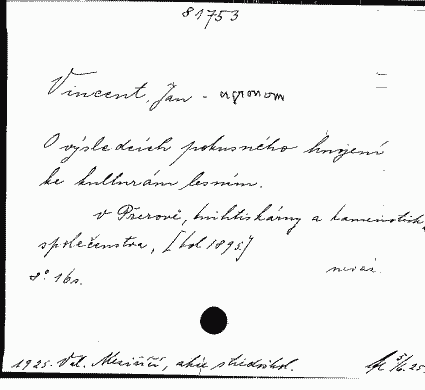 81753
Vincent, Jan - agronom
O výsledcích pokusného hnojení
ke kulturám lesním.
v Přerově, knihtiskárny a kamenotisk.
společenstva, [kol 1895]
8° 16 s. neváz.
1925. Val. Meziříčí, akc. středoškol. 5/6. 25.